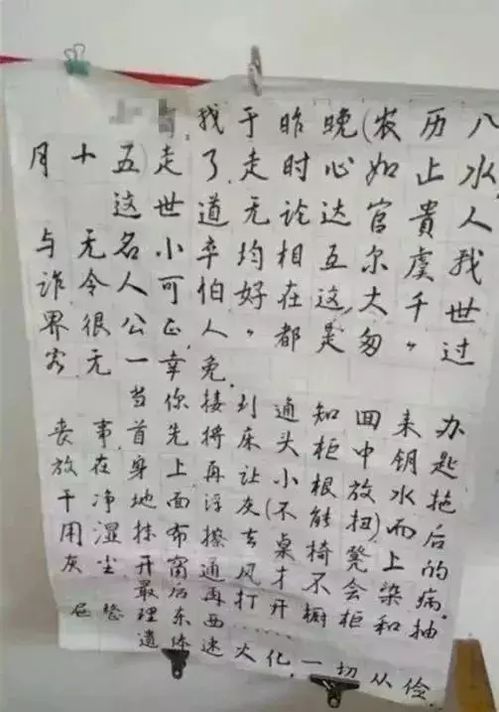 小 我于昨晚(农历八
月十五)走了,走时心如止水,
这世道无论达官贵人
与无名小卒均相互尔虞我
诈令人可怕,好在这大千世
界很公正,人〃都是匆〃过
客无一幸免.
当你接到通知回来办
丧事首先将床头柜中钥匙
放在身上再让小根放水拖
干净地面浮灰(不能扭)而后
用湿抹布擦去桌椅凳上的
灰尘.开窗通风才不会染病.
最后再打开橱柜和抽
屉整理东西……
遗体速火化,一切从俭.